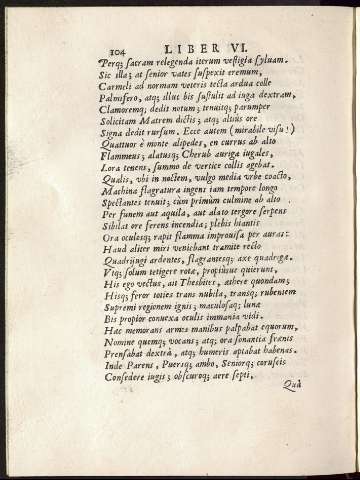 104 LIBER VI.
Perq; sacram relegenda iterum vestigia syluam.
Sic illa; at senior vates suspexit eremum,
Carmeli ad normam veteris tecta ardua colle
Palmifero, atq; illuc bis sustulit ad iuga dextram,
Clamoremq; dedit notum; tenuitq; parumper
Solicitam Matrem dictis; atq; altius ore
Signa dedit rursum. Ecce autem (mirabile visu!)
Quattuor è monte alipedes, en currus ab alto
Flammeus; alatusq; Cherub auriga iugales,
Lora tenens, summo de vertice collis agebat.
Qualis, vbi in noctem, vulgo media vrbe coacto,
Machina flagratura ingens iam tempore longo
Spectantes tenuit; cùm primùm culmine ab alto
Per funem aut aquila, aut alato tergore serpens
Sibilat ore ferens incendia; plebis hiantis
Ora oculosq; rapit flamma improuisa per auras:
Haud aliter miri venichant tramite recto
Quadrijugi ardentes, flagrantesq; axe quadrigæ.
Vtq; solum tetigere rotæ, propiusue quierunt,
His ego vectus, ait Thesbites, æthere quondam;
Hisq; feror toties trans nubila, transq; rubentem
Supremi regionem ignis; maculosaq; lunæ
Bis propior conuexa oculis immania vidi.
Hac memorans armos manibus palpabat equorum,
Nomine quemq; vocans; atq; ora sonantia frænis
Prensabat dextrâ, atq; humeris aptabat habenas.
Inde Parens, Puerq; ambo, Seniorq; coruscis
Consedere iugis; obscuroq; aere septi,
Quà